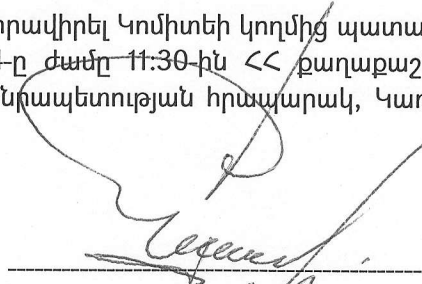 հրավիրել Կոմիտեի կողմից պատա
-ը ժամը 11:30-ին ՀՀ քաղաքաշ
նրապետության հրապարակ, Կառ